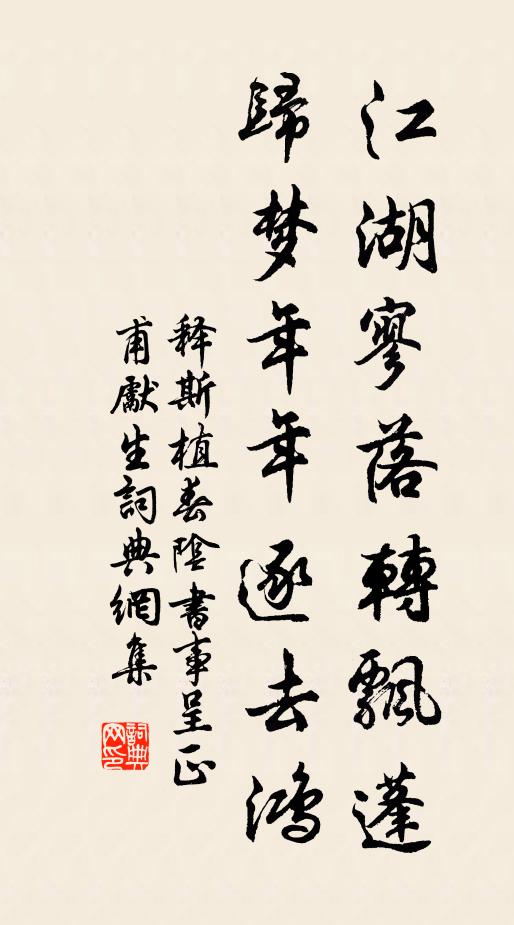 江湖寥落轉飄蓬
歸梦年年逐去鴻
释斯植春陰書事呈正
甫獻生詞典網集
詞典網印